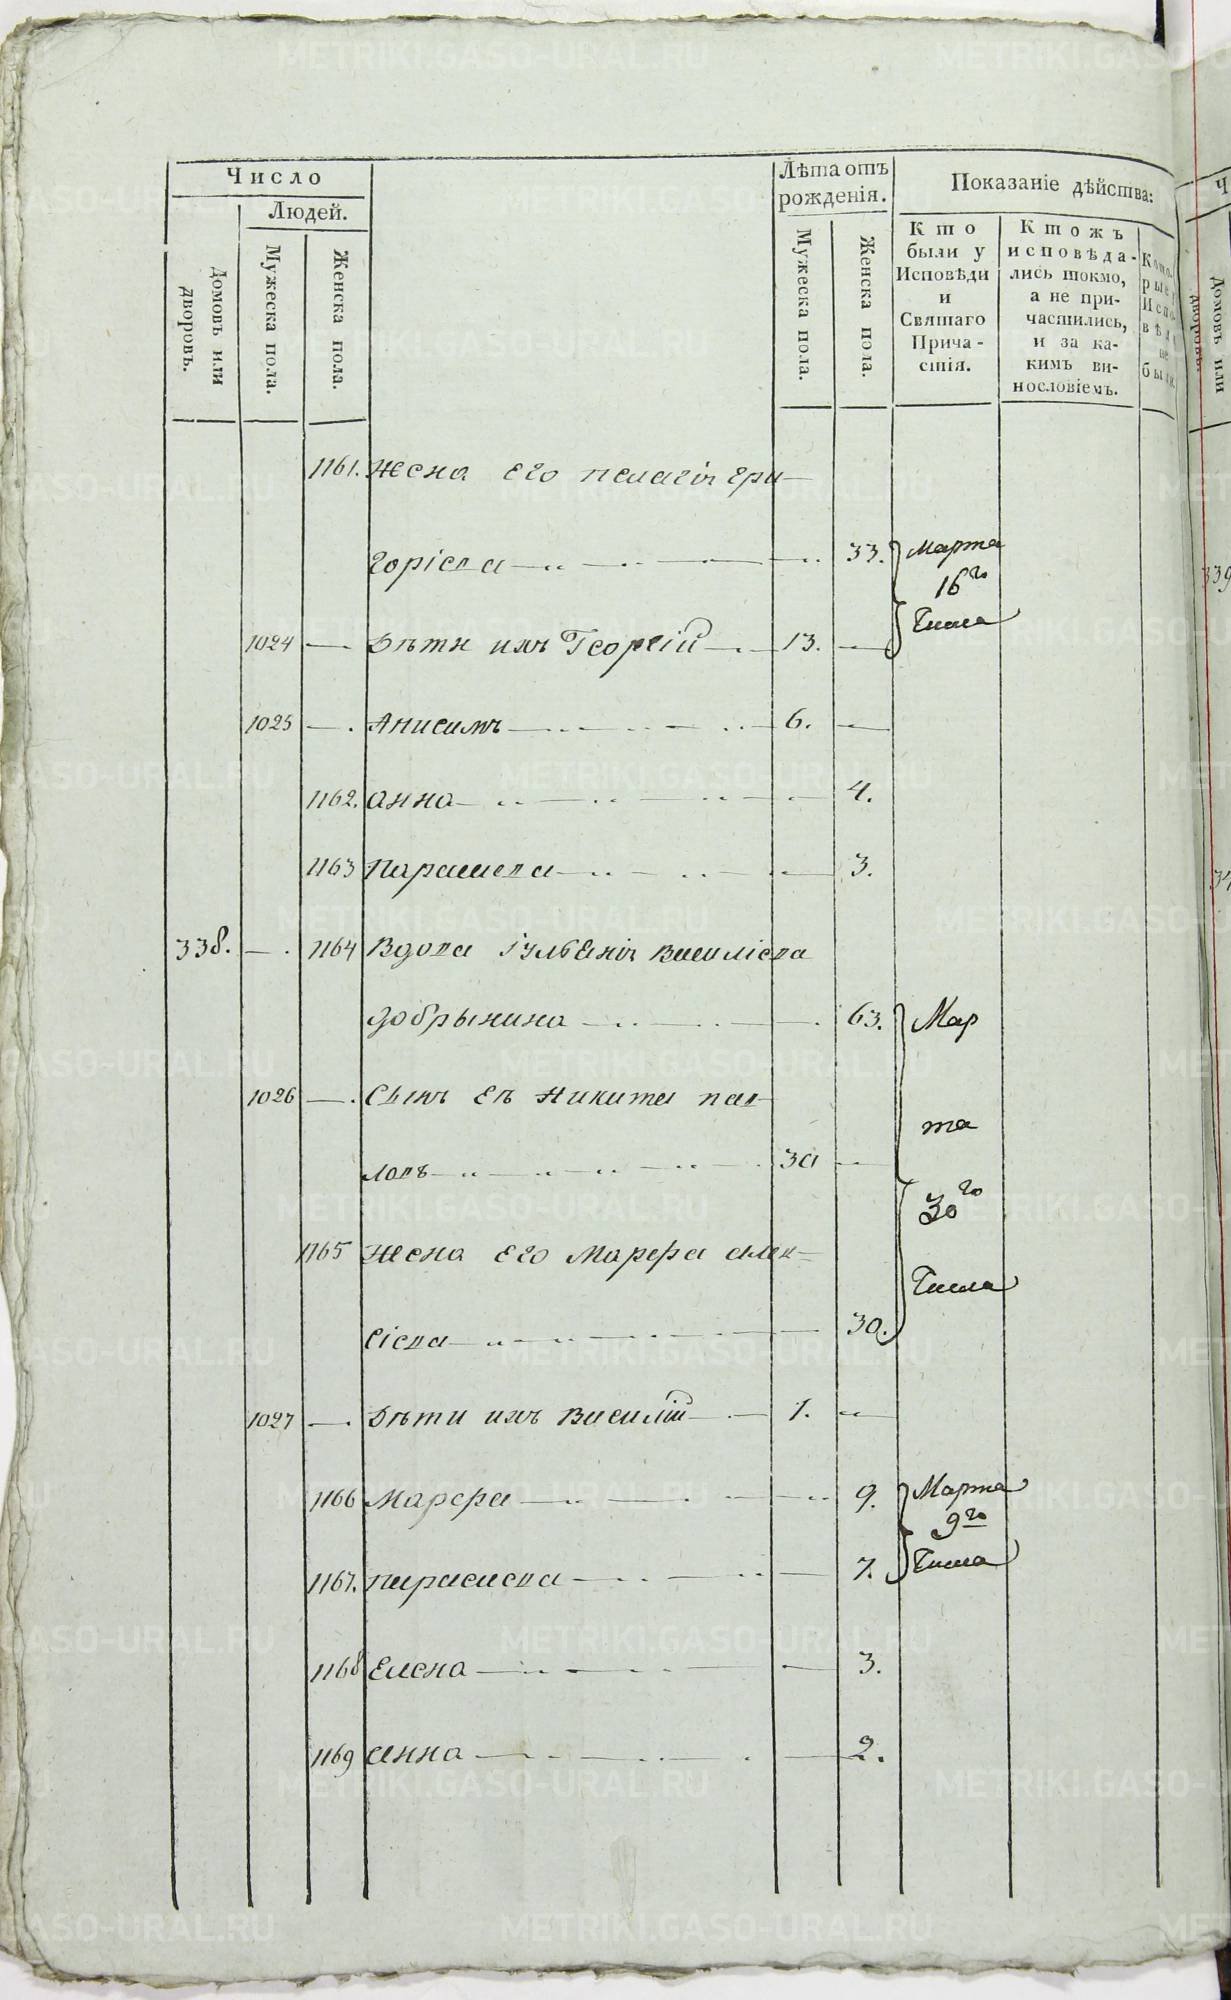 Число
Людей.
Домовъ или дворовъ.
Мужеска пола.
Женска пола.
Лѣта отъ рожденія.
Мужеска пола.
Женска пола.
Показаніе дѣйства:
Кто были у Исповѣди и Святаго Причастія.
Ктожъ исповѣдались токмо, а не причастились, и за какимъ винословіемъ.
Которые у Исповѣди не были.
1161. Жена его пелагія гри-
горіева 33. Марта 16го числа
1024 Дѣти ихъ Георгій 13.
1025 Анисимъ 6.
1162. анна 4.
1163 Парасиева 3.
338. 1164 Вдова Василіева
добрынина 63. Мар
1026 Сынъ Ея Никита пав- та
ловъ 30 30го
1165 Жена его Марѳа алек- числа
сіева 30.
1027 Дѣти ихъ Василій 1.
1166 Марѳа 9. Марта 9го
1167. парасиева 7. числа
1168 Елена 3.
1169 анна 2.
METRIKI.GASO-URAL.RU